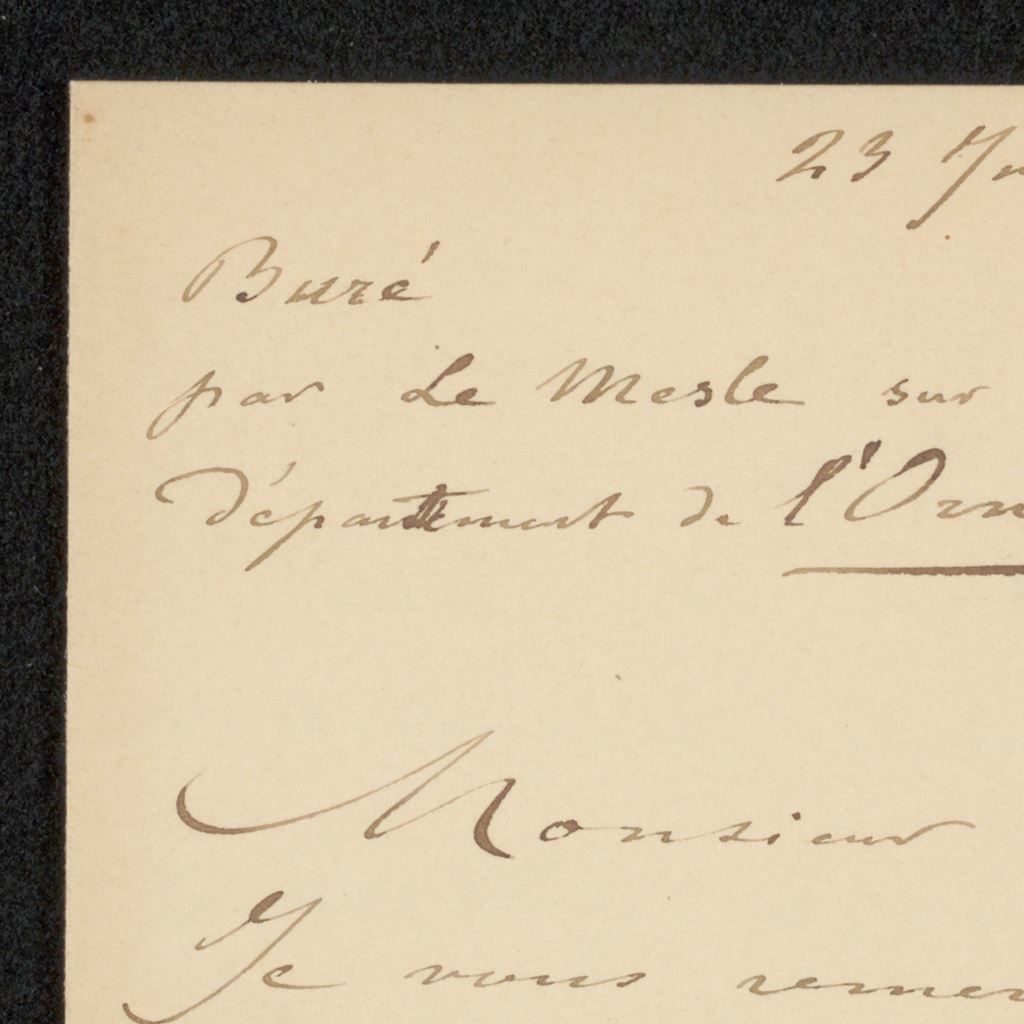 23 Ju
Buré
par Le Mesle sur
département de l'Orn
Monsieur
Je vous remer